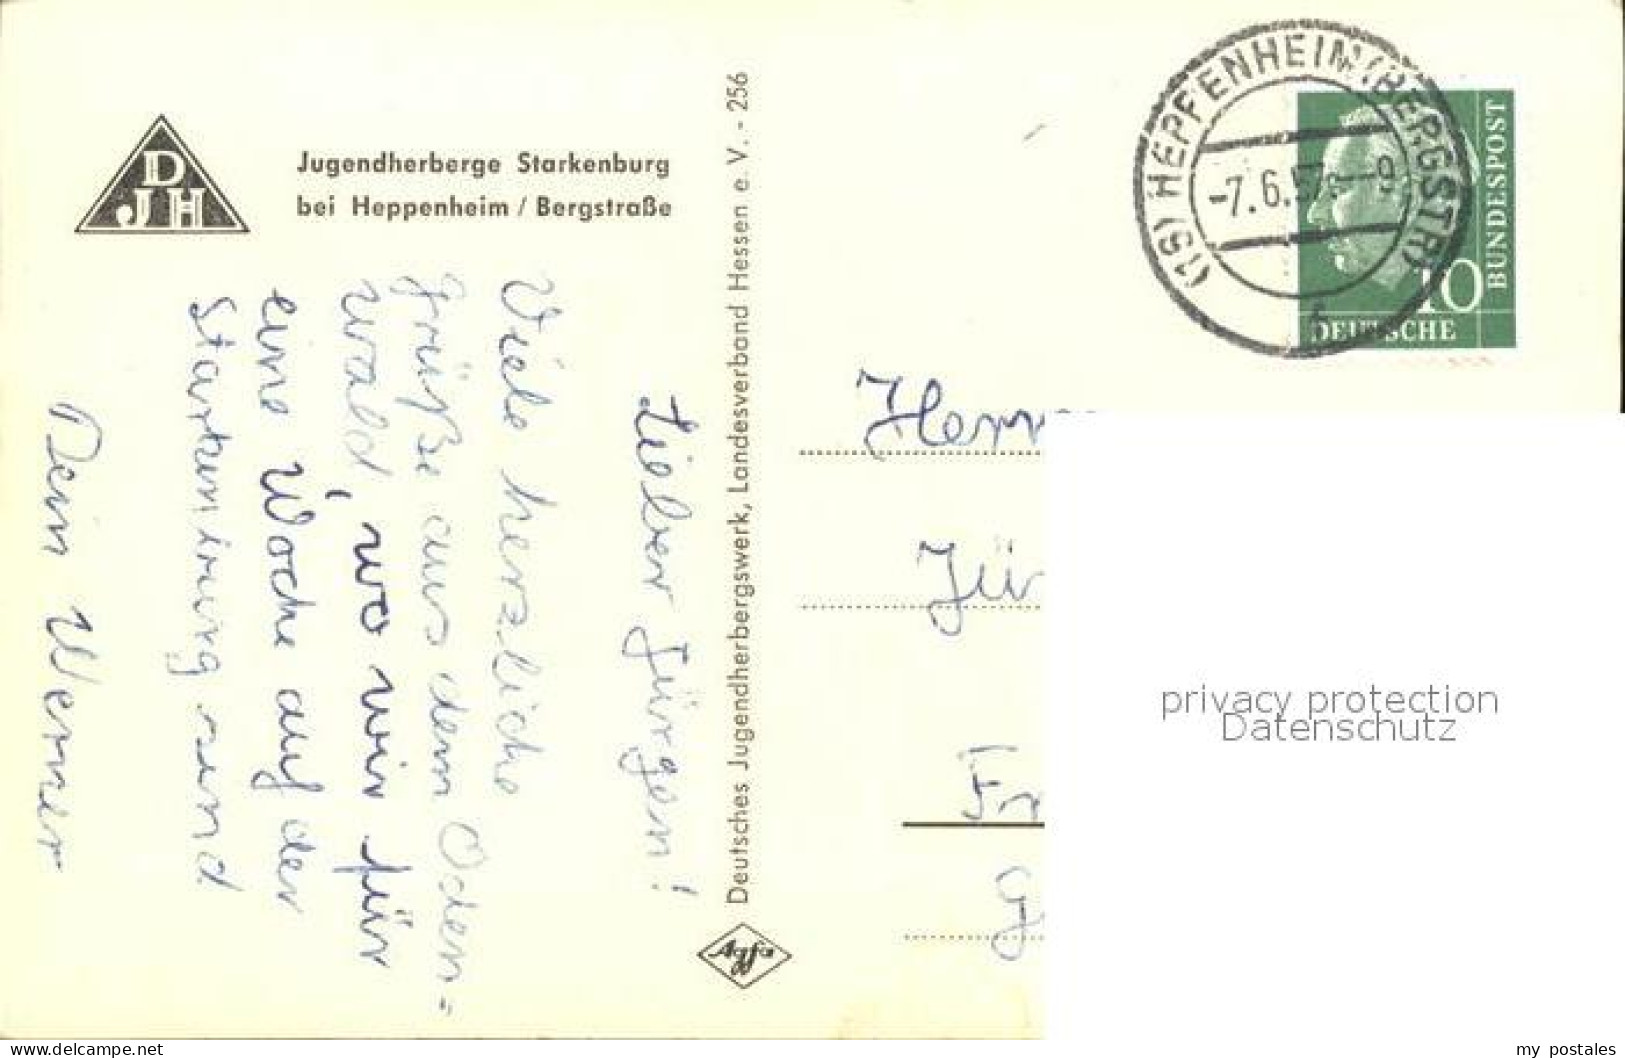 DJH
Jugendherberge Starkenburg
bei Heppenheim / Bergstraße
Lieber Jürgen!
Viele herzliche
Grüße aus dem Oden=
wald, wo wir für
eine Woche auf der
Starkenburg sind
Dein Werner
Deutsches Jugendherbergswerk, Landesverband Hessen e. V. - 256
Agfa
(16) HEPPENHEIM (BERGSTR)
-7.6.57 - 9
DEUTSCHE
BUNDESPOST
10
Herrn
Jür
privacy protection
Datenschutz
my postales